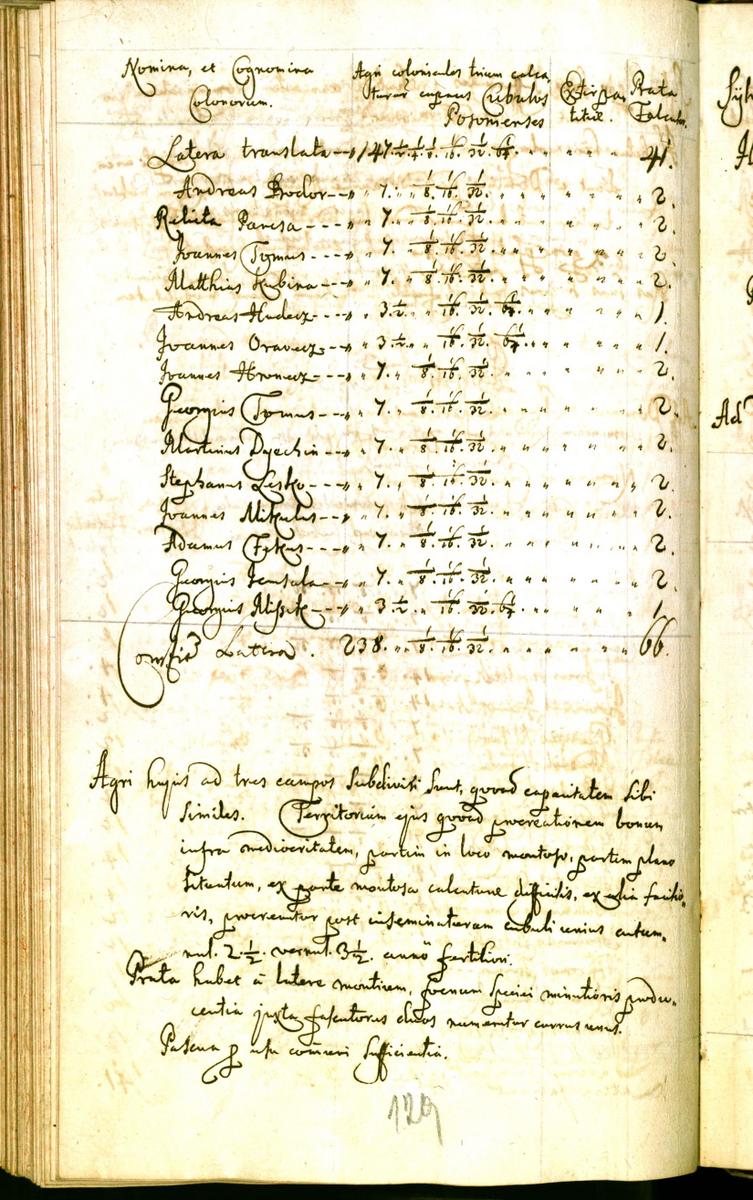 Nomina, et Cognomina Colonorum.
Agri coloniales trium calcaturarum capaces Cubulos Posonienses
Extirpatitiæ.
Prata Falcatorum
Latera translata 147. 1/2. 1/4. 1/8. 1/16. 1/32. 1/64. 41.
Andreas Bodor 7. 1/8. 1/16. 1/32. 2.
Relicta 7. 1/8. 1/16. 1/32. 2.
Joannes Tomus 7. 1/8. 1/16. 1/32. 2.
Matthias Kubina 7. 1/8. 1/16. 1/32. 2.
Andreas Hudecz 3. 1/2. 1/16. 1/32. 1/64. 1.
Joannes Oravecz 3. 1/2. 1/16. 1/32. 1/64. 1.
Joannes Hronecz 7. 1/8. 1/16. 1/32. 2.
Georgius Tomus 7. 1/8. 1/16. 1/32. 2.
Martinus 7. 1/8. 1/16. 1/32. 2.
Stephanus Lesko 7. 1/8. 1/16. 1/32. 2.
Joannes Mikulus 7. 1/8. 1/16. 1/32. 2.
Adamus 7. 1/8. 1/16. 1/32. 2.
Georgius 7. 1/8. 1/16. 1/32. 2.
Georgius 3. 1/2. 1/16. 1/32. 1/64. 1.
Latera. 238. 1/8. 1/16. 1/32. 66.
Agri hujus ad tres campos subdivisi sunt, quoad capacitatem sibi
similes. Territorium ejus quoad procreationem bonum
infra mediocritatem, partim in loco montoso, partim plano
situatum, ex parte montosa calcaturæ difficilis, ex alia facilio-
ris, procreantur post inseminaturam cubuli unius autum-
nal. 2 1/2. vernal. 3 1/2. anno fertiliori.
Prata habet à latere montium, foenum speciei minutioris produ-
centia juxta falcatores duos numeratur currus unus.
Pascua p usu sufficientia.
129